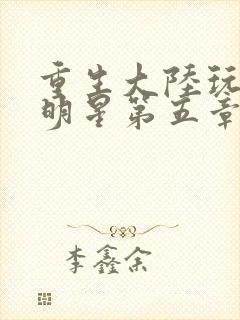 重生大陆玩
明星第五章
李鑫余